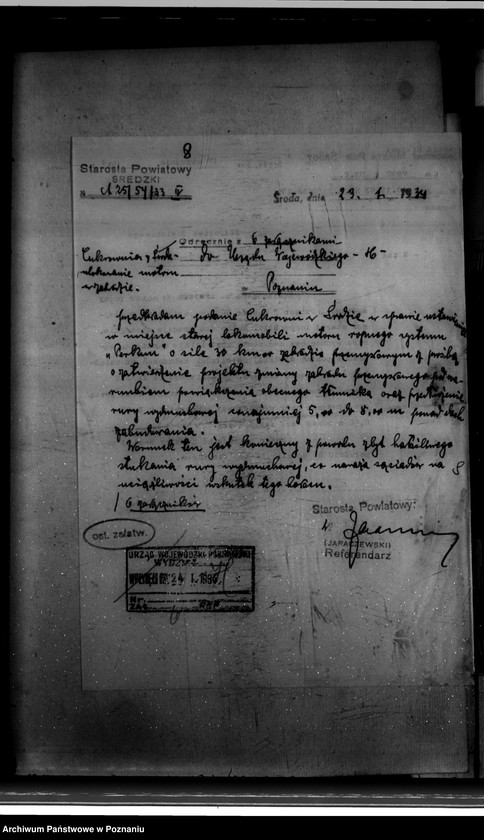 8
Starosta Powiatowy
ŚREDZKI
N A 25/54/33 IV
Środa, dnia 23. 1. 1934
Odręcznie z 6 załącznikami
Cukrownia Środa
do Urzędu Wojewódzkiego
ulokowanie motoru
w zakładzie.
w Poznaniu
przedkładam podanie Cukrowni w Środzie w sprawie ustawienia
w miejsce starej lokomobili motoru ropnego systemu
"Perkun" o sile 30 km w zakładzie przemysłowym z prośbą
o zatwierdzenie projektu zmiany zakładu przemysłowego pod wa-
runkiem powiększenia obecnego tłumika oraz przedłużenia
rury wydmuchowej conajmniej 5,00 do 8,00 m ponad dach
zabudowania.
Warunek ten jest konieczny z powodu zbyt hałaśliwego
stukania rury wydmuchowej, co naraża sąsiadów na
uciążliwości wskutek tego
/ 6 załączników
Starosta Powiatowy:
(JARACZEWSKI)
Referendarz
ost. załatw.
URZĄD WOJEWÓDZKI POZNAŃSKI
WYDZIAŁ
24. I. 1934
Nr.
ZAŁ.
Archiwum Państwowe w Poznaniu